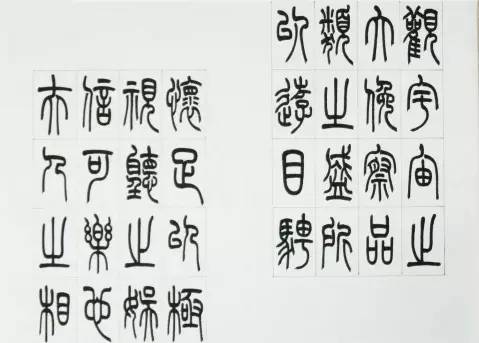 觀宇宙之
大俛察品
類之盛所
以遊目騁
懷足以極
視聽之娛
信可樂也
夫人之相